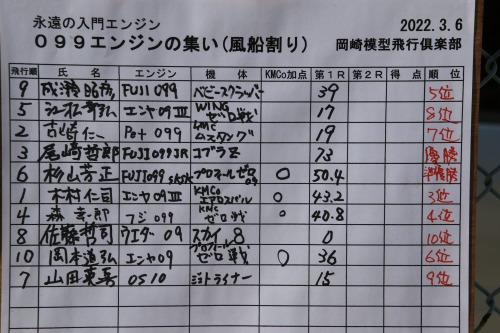 永遠の入門エンジン 2022.3.6
099エンジンの集い(風船割り) 岡崎模型飛行倶楽部
飛行順 氏名 エンジン 機体 KMCo加点 第1R 第2R 得点 順位
9 成瀬 FUJI 099 ベビースクラッパー 39 5位
5 エンヤ09III WING ゼロ戦 17 8位
2 古崎仁一 Pet 099 KMC ムスタング 19 7位
3 尾崎哲郎 FUJI099JR コブラZ 73 優勝
6 杉山芳正 FUJI099 プロフィールゼロ 09 ○ 50.4 準優勝
1 木村仁司 エンヤ09III KMCo ○ 43.2 3位
4 森幸一郎 フジ099 KMC ゼロ戦 ○ 40.8 4位
8 佐藤哲司 ウエダー09 スカイ8 0 10位
10 岡本道弘 エンヤ09 プロフィール ゼロ戦 ○ 36 6位
7 山田 OS10 ジェトライナー 15 9位